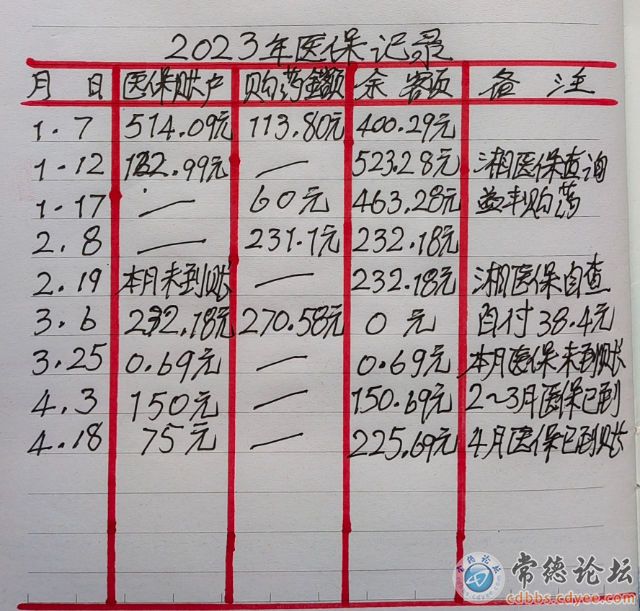 2023年医保记录
月 日 医保账户 购药金额 余 额 备 注
1.7 514.09元 113.80元 400.29元
1.12 122.99元 — 523.28元 湘医保查询
1.17 — 60元 463.28元 益丰购药
2.8 — 231.1元 232.18元
2.19 本月未到账 — 232.18元 湘医保自查
3.6 232.18元 270.58元 0元 自付38.4元
3.25 0.69元 — 0.69元 本月医保未到账
4.3 150元 — 150.69元 2~3月医保已到
4.18 75元 — 225.69元 4月医保已到账
常德论坛
常德论坛
cdbbs.cdyee.com